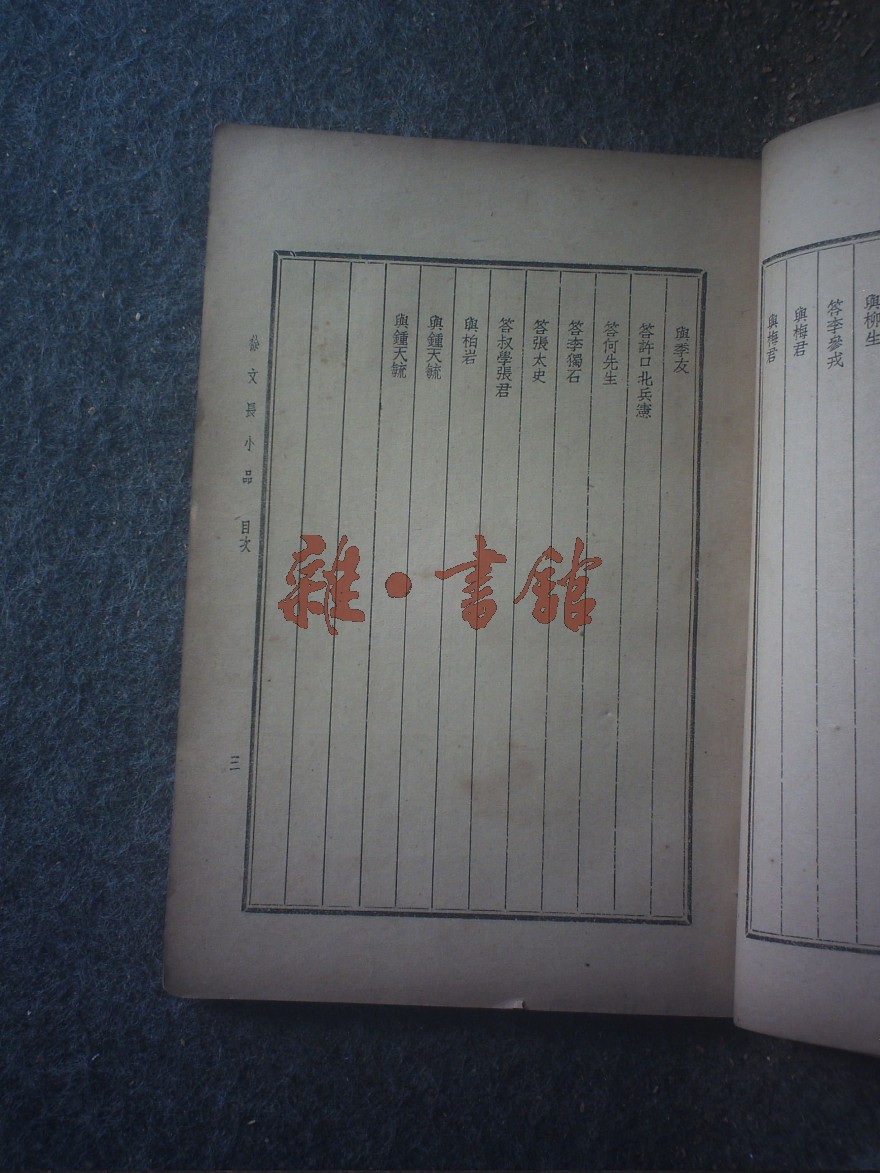 與柳生
答李參戎
與梅君
與梅君
與季友
答許口北兵憲
答何先生
答李獨石
答張太史
答叔學張君
與柏岩
與鍾天毓
與鍾天毓
徐文長小品 目次
三
雜·書館